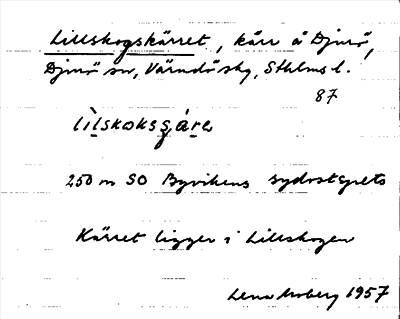 Lillskogskärret, kärr å Djurö,
Djurö sn, Värmdö skg, Sthlms l.
87
lìlskoksçáre
250 m SO Byvikens sydostspets
Kärret ligger i Lillskogen
Lena Moberg 1957